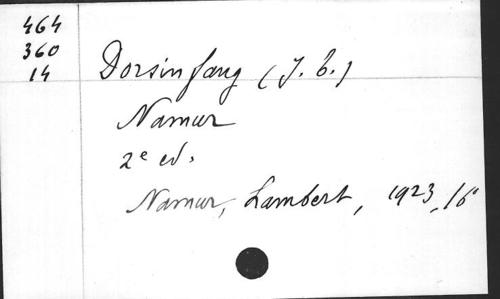 464
360
14
Dorsinfang (J. b.)
Namur
2e ed.
Namur, Lambert, 1923, 16°